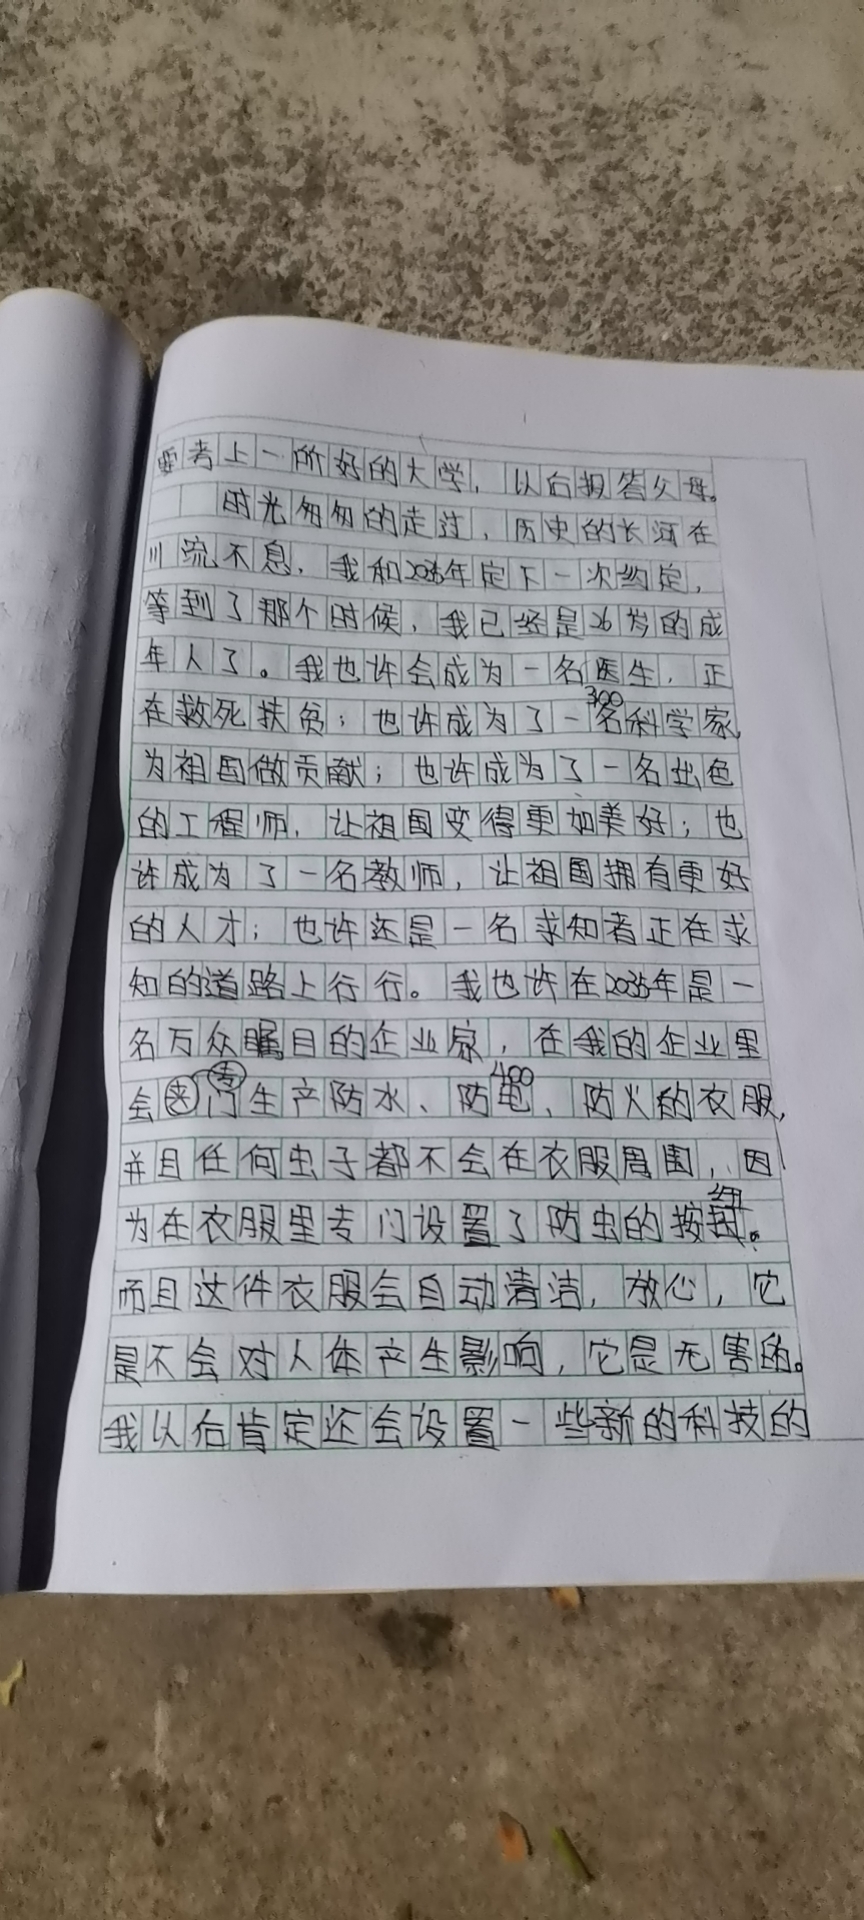 要考上一所好的大学，以后报答父母。
时光匆匆的走过，历史的长河在
川流不息，我和2035年定下一次约定，
等到了那个时候，我已经是26岁的成
年人了。我也许会成为一名医生，正
在救死扶贫；也许成为了一名科学家，
300
为祖国做贡献；也许成为了一名出色
的工程师，让祖国变得更加美好；也
许成为了一名教师，让祖国拥有更好
的人才；也许还是一名求知者正在求
知的道路上行行。我也许在2035年是一
名万众瞩目的企业家，在我的企业里
会专门生产防水、防电、防火的衣服，
400
并且任何虫子都不会在衣服周围，因
为在衣服里专门设置了防虫的按钮。
而且这件衣服会自动清洁，放心，它
是不会对人体产生影响，它是无害的。
我以后肯定还会设置一些新的科技的